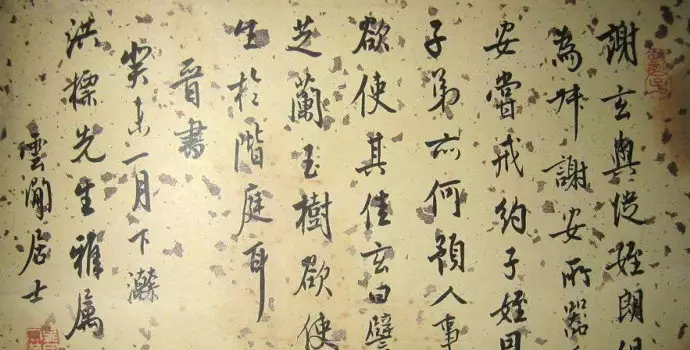 謝玄與從姪朗
為叔謝安所器
安嘗戒約子姪因
子弟亦何預人事
欲使其佳玄曰譬
芝蘭玉樹欲使
生於階庭耳
晉書
癸未一月下澣
洪標先生雅属
雲澗居士